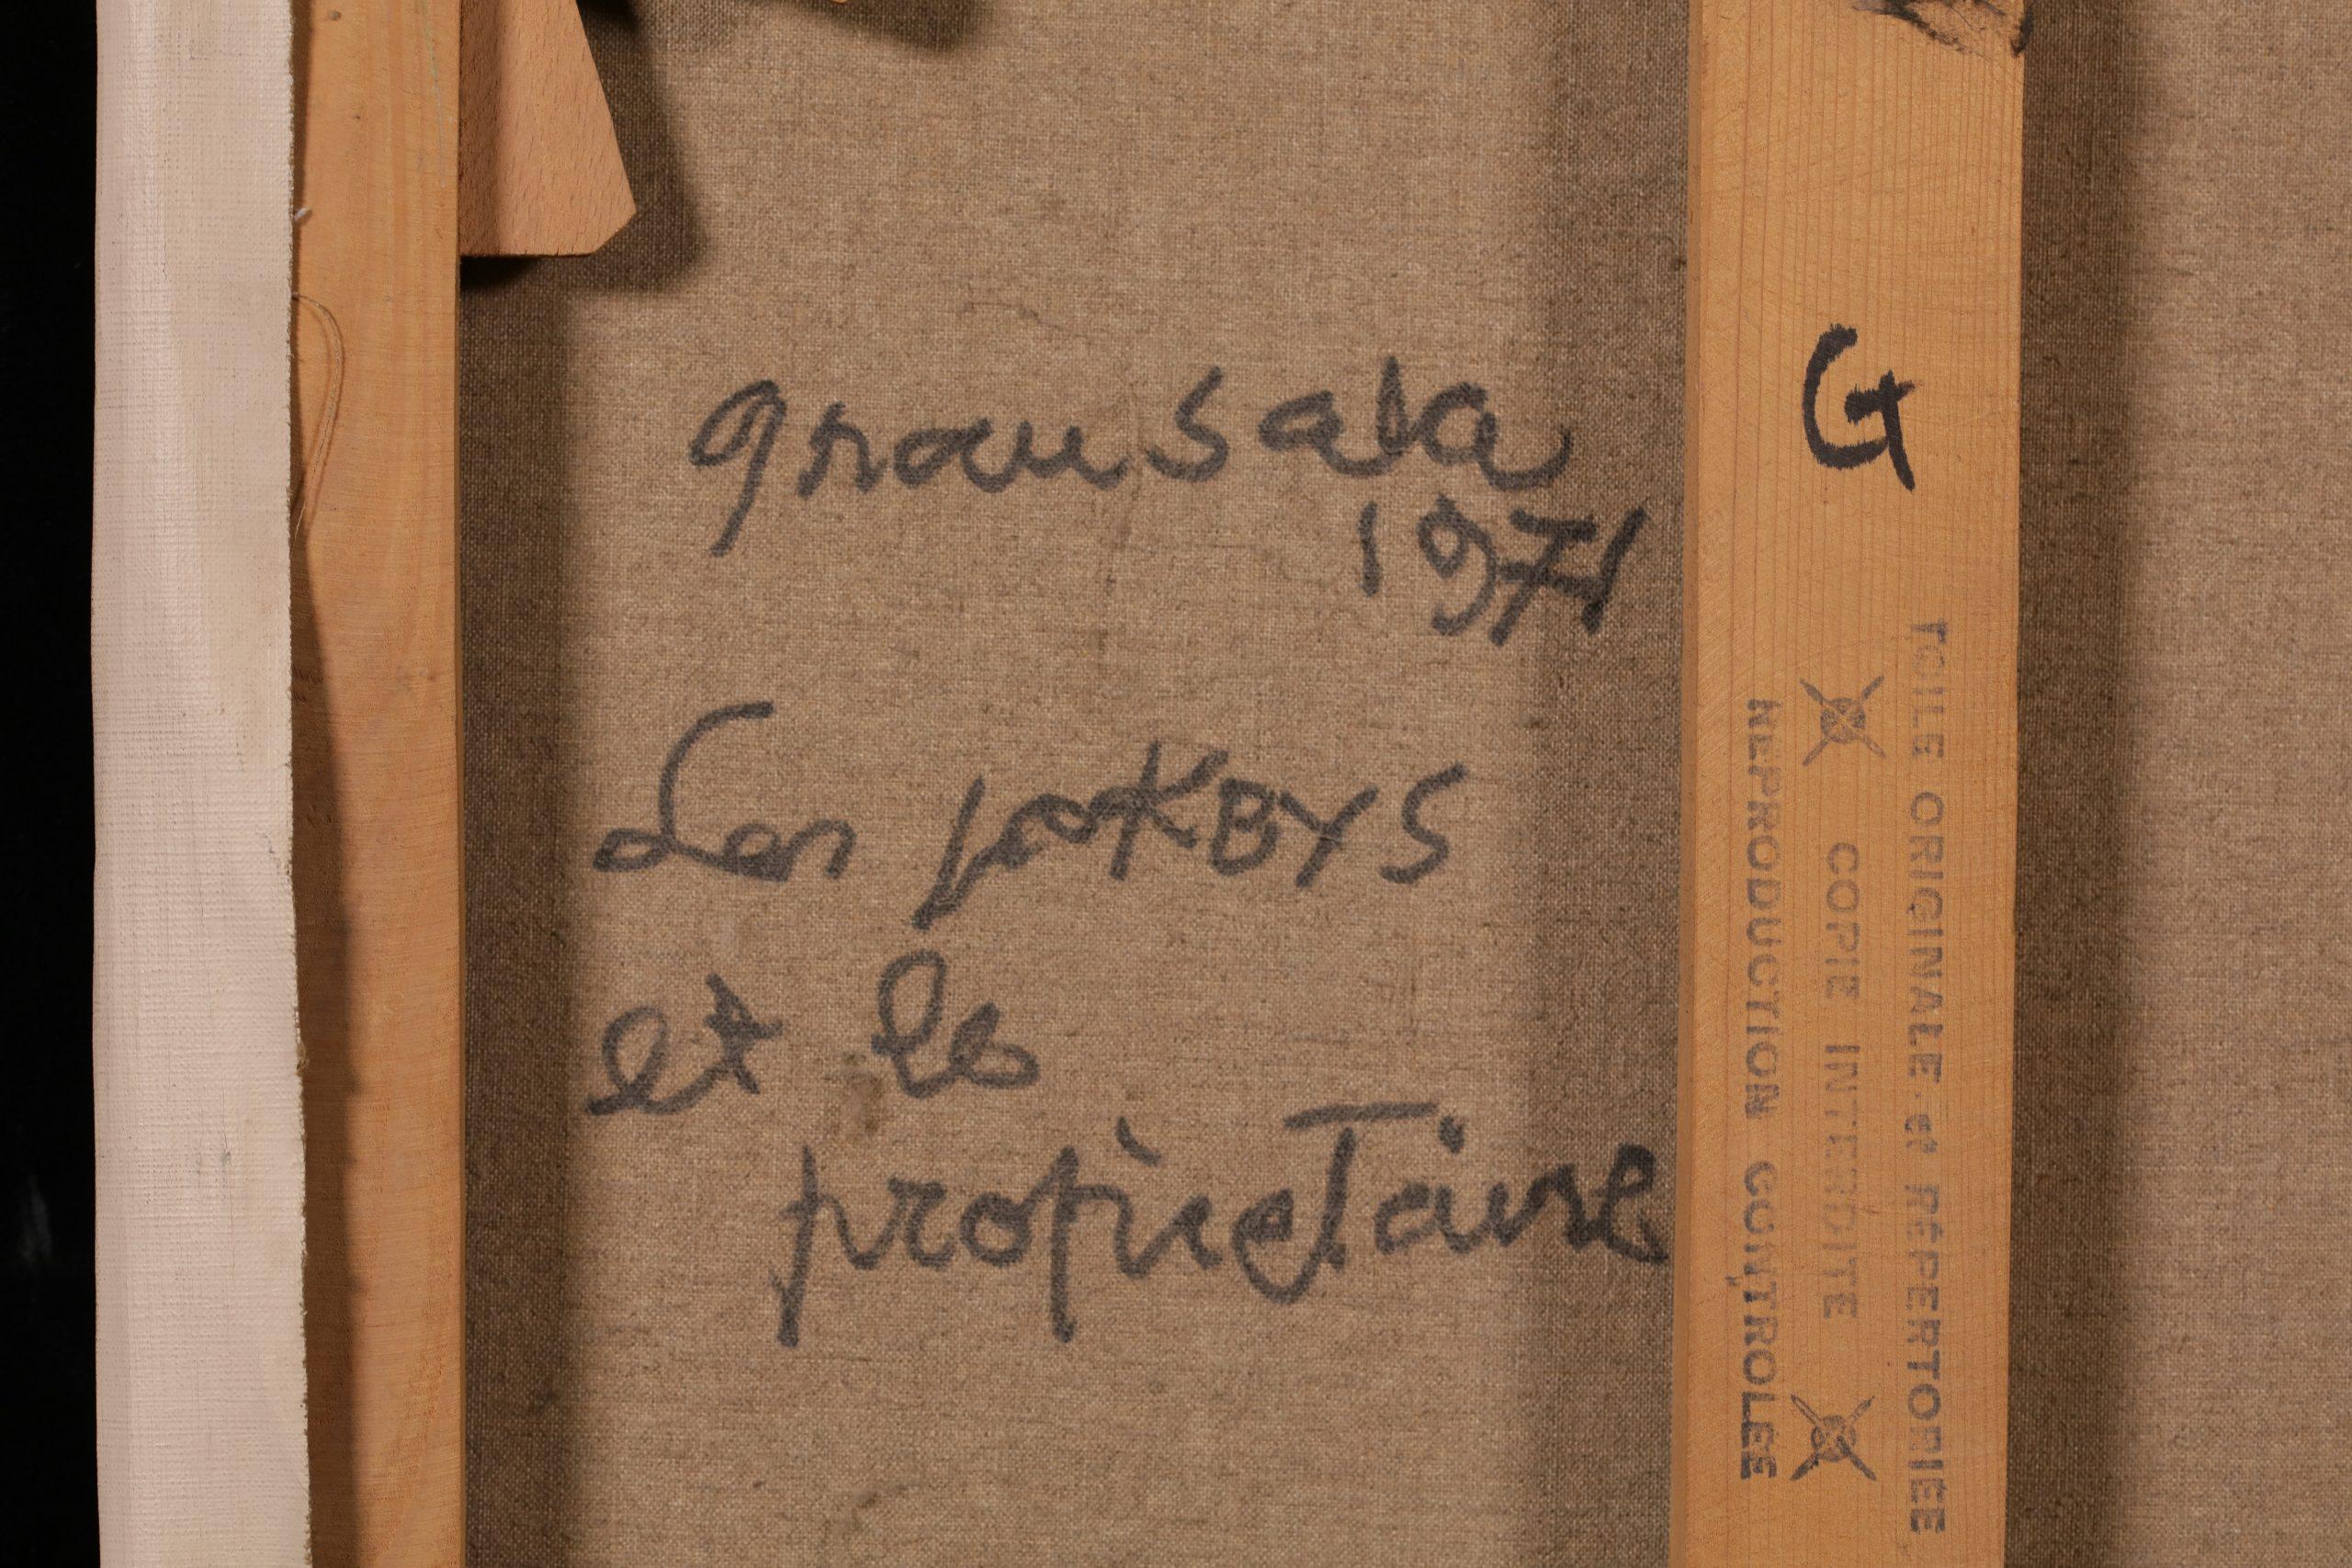 grau sala
1971
Les jocKEYS
et le
propietaire
G
TOILE ORIGINALE et RÉPERTORIEE
COPIE INTERDITE
REPRODUCTION CONTROLEE